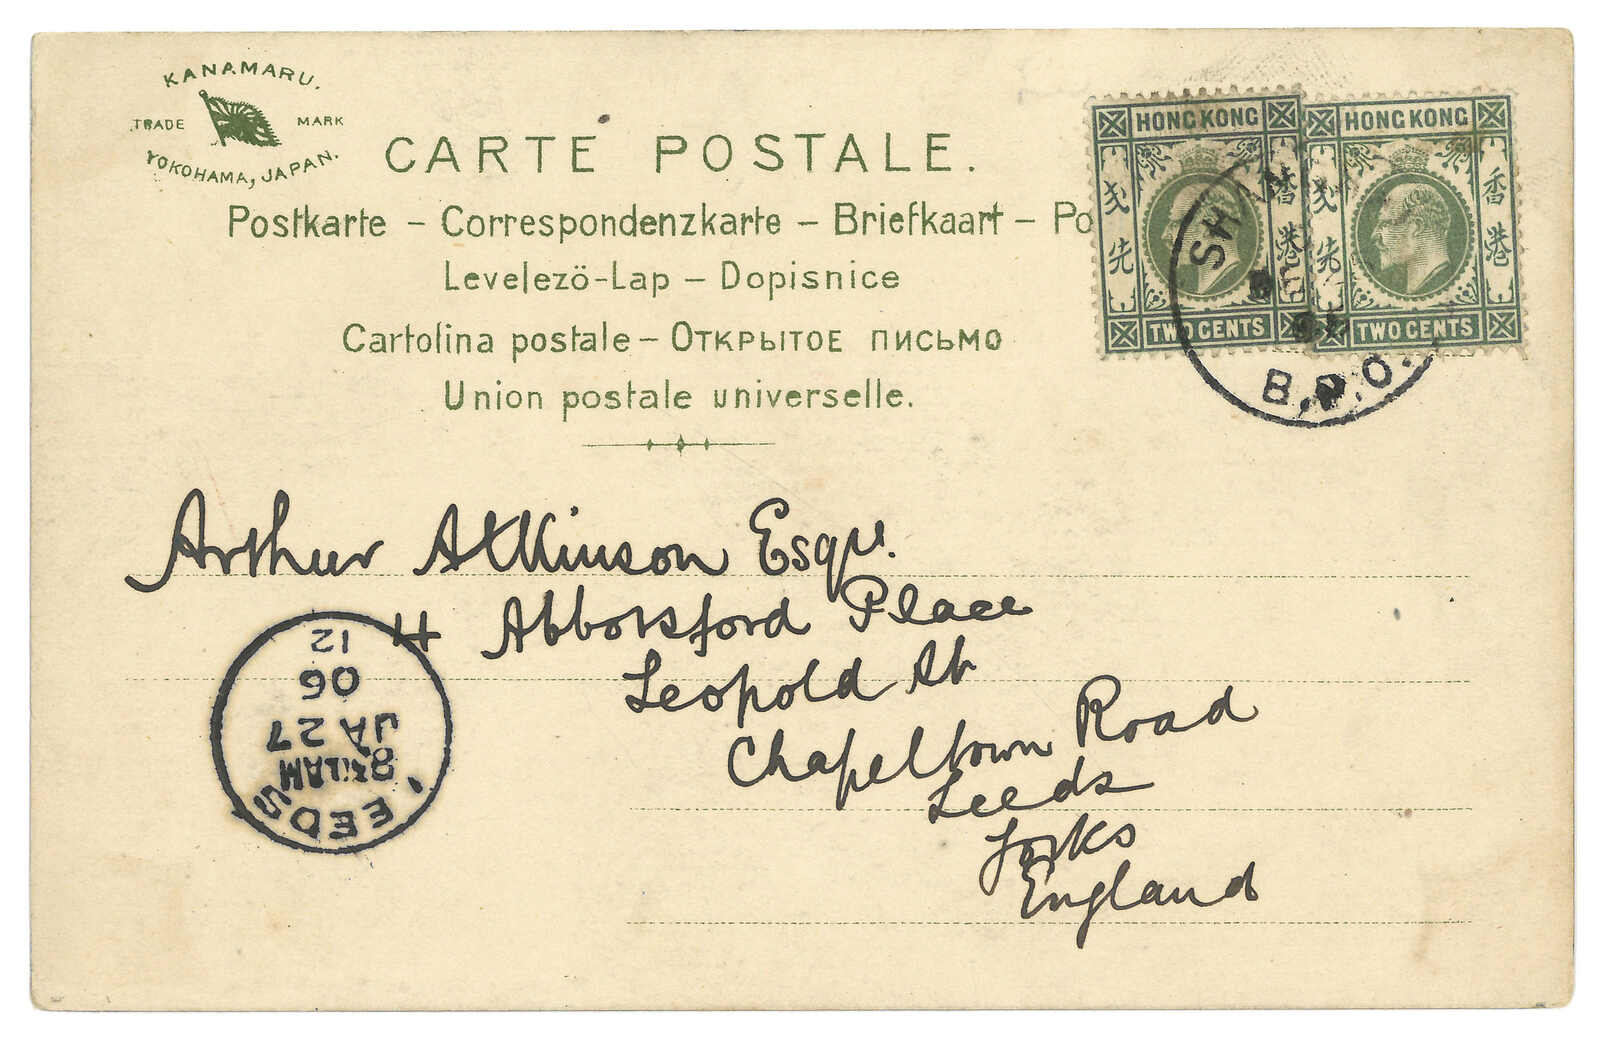 KANAMARU.
TRADE MARK
YOKOHAMA, JAPAN.
CARTE POSTALE.
Postkarte – Correspondenzkarte – Briefkaart – Po
Levelező-Lap – Dopisnice
Cartolina postale – Открытое письмо
Union postale universelle.
HONG KONG
香港
TWO CENTS
HONG KONG
香港
TWO CENTS
SHA
B.P.O.
Arthur Atkinson Esqre.
11 Abbotsford Place
Leopold St
Chapeltown Road
Leeds
Yorks
England
LEEDS
JA 27
06
12